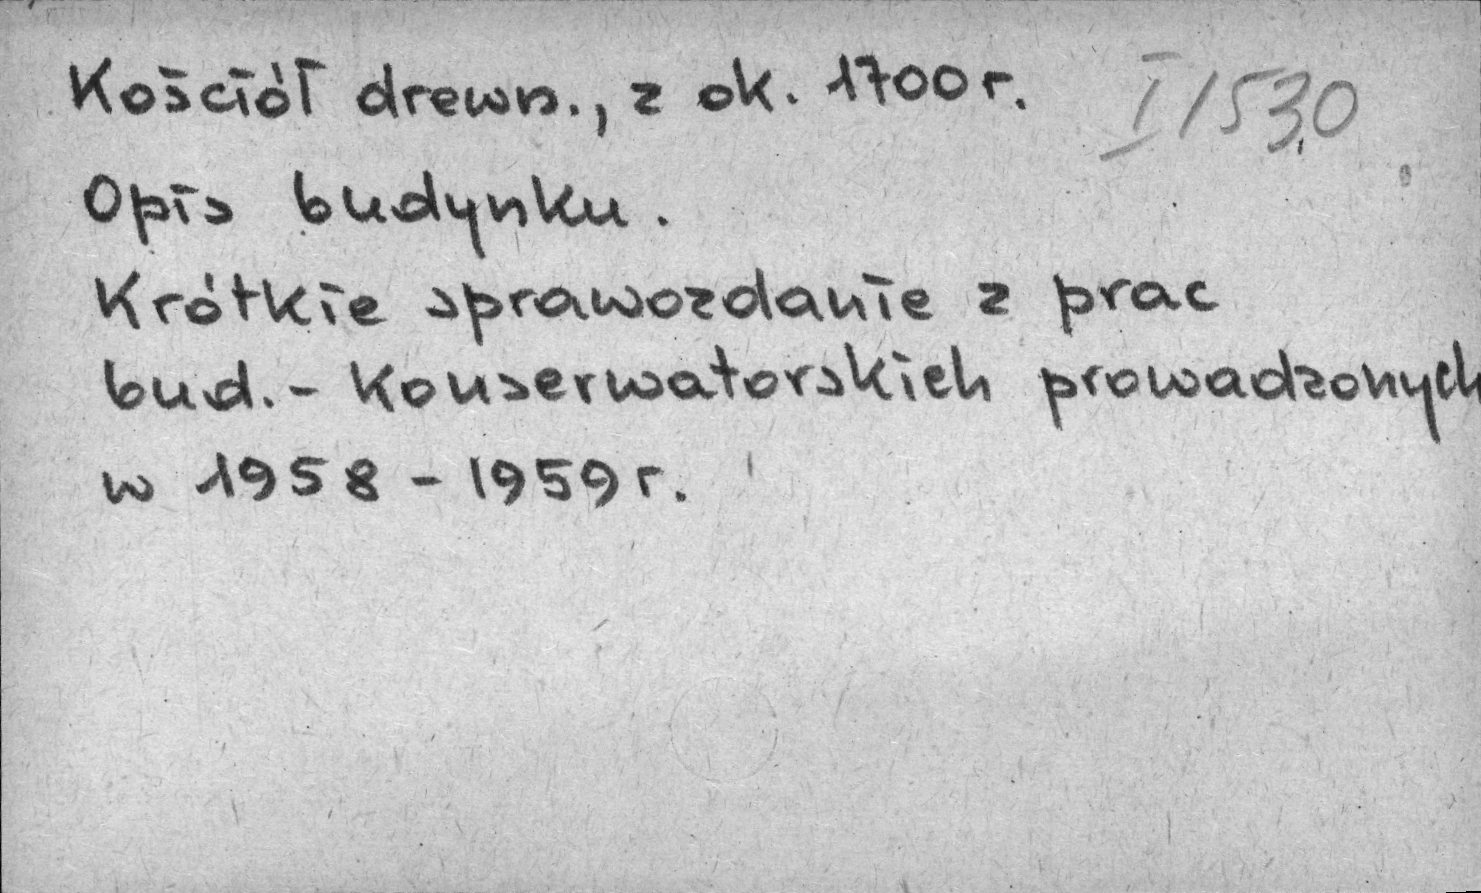 Kościół drewn., z ok. 1700 r. I/530
Opis budynku.
Krótkie sprawozdanie z prac
bud.- konserwatorskich prowadzonych
w 1958 - 1959 r.